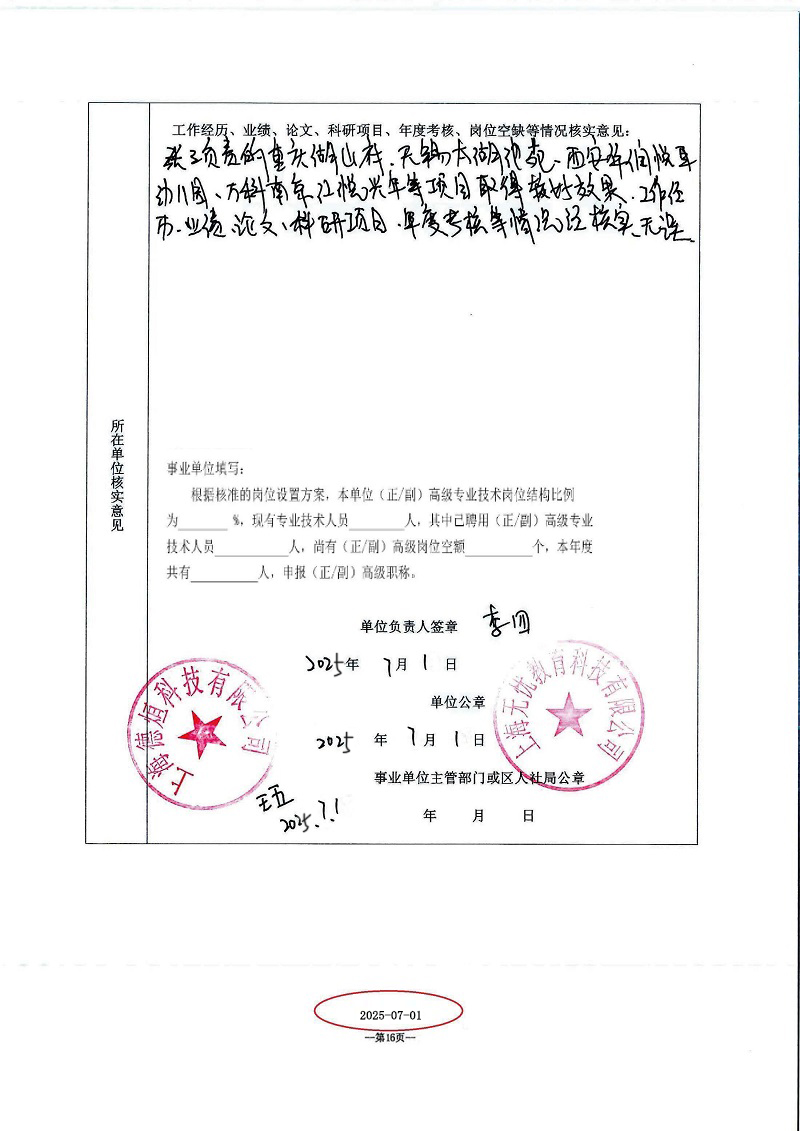 工作经历、业绩、论文、科研项目、年度考核、岗位空缺等情况核实意见：
张三负责的重庆湖山村、无锡太湖 西安华润悦
幼儿园、万科南京江悦兴年等项目取得较好效果、工作经
历、业绩、论文、科研项目、年度考核等情况经核实、无误
所在单位核实意见
事业单位填写：
根据核准的岗位设置方案，本单位（正/副）高级专业技术岗位结构比例
为 %，现有专业技术人员 人，其中已聘用（正/副）高级专业
技术人员 人，尚有（正/副）高级岗位空额 个，本年度
共有 人，申报（正/副）高级职称。
单位负责人签章 李四
2025年 7月 1日
单位公章
2025 年 7月 1日
事业单位主管部门或区人社局公章
年 月 日
上海德烜科技有限公司
上海无忧教育科技有限公司
王五
2025.7.1
2025-07-01
—第16页—